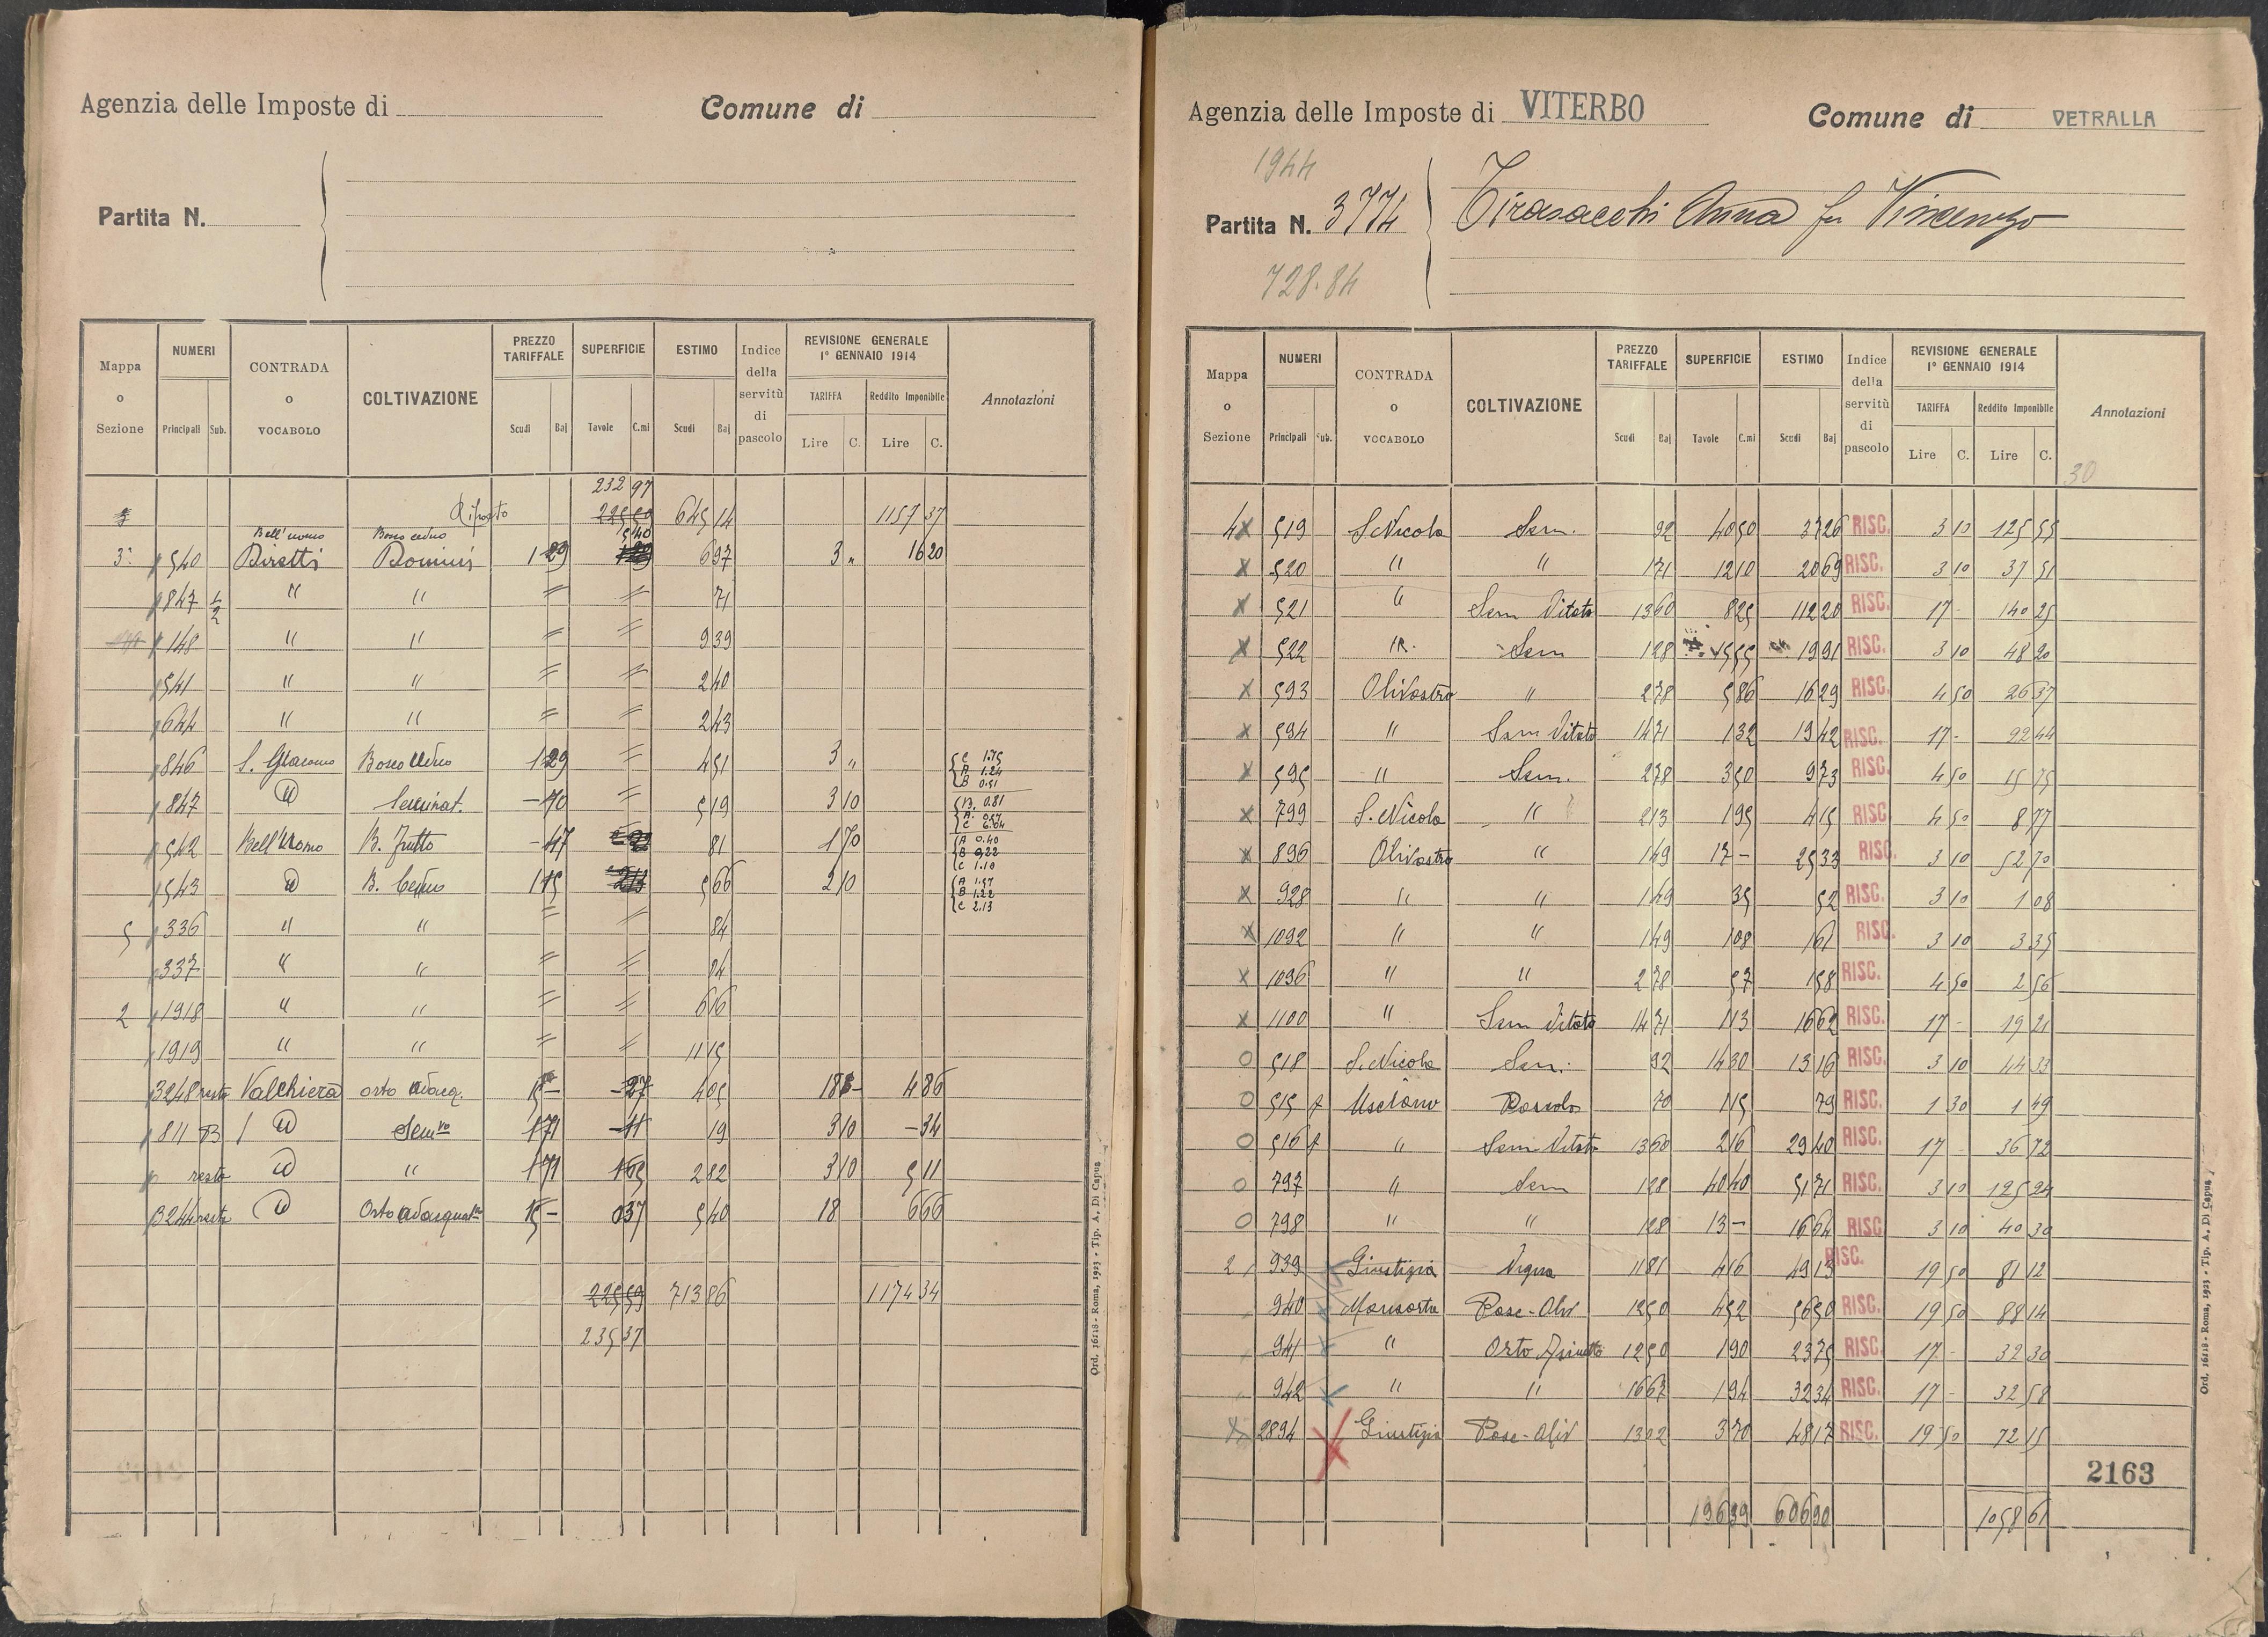 Agenzia delle Imposte di
Comune di
Partita N.
Mappa o Sezione
NUMERI
Principali Sub.
CONTRADA o VOCABOLO
COLTIVAZIONE
PREZZO TARIFFALE
Scudi Baj
SUPERFICIE
Tavole C.mi
ESTIMO
Scudi Baj
Indice della servitù di pascolo
REVISIONE GENERALE 1° GENNAIO 1914
TARIFFA
Lire C.
Reddito Imponibile
Lire C.
Annotazioni
232 97
Riporto 225 59 645 14 1157 37
Bell'uomo Bosco ceduo 5 40
3 540 1 29 6 97 3 " 16 20
847 1/2 " " = = 71
148 " " = = 9 39
541 " " = = 2 40
644 " " = = 2 43
846 S. Giacomo Bosco Ceduo 1 29 = 4 51 3 " C 1.75 A 1.24 B 0.51
847 Seminat. - 70 = 5 19 3 10 B. 0.81
542 Bell'Uomo B. Frutto - 47 81 1 70 A 0.40 B 0.22 C 1.10
543 B. Ceduo 1 15 5 66 2 10 A 1.57 B 1.22 C 2.13
5 336 " " = = 84
337 " " = = 84
2 1918 " " = = 6 16
1919 " " = = 11 15
3248 resto Valchiera orto adacq. 15 - - 27 4 05 18 - 4 86
811 B Semvo 1 71 - 11 19 3 10 - 34
resto " 1 71 1 65 2 82 3 10 5 11
3244 resto Orto adacquato 15 - 0 37 5 40 18 6 66
225 59 713 86 1174 34
235 37
Ord. 16118 - Roma, 1923 - Tip. A. Di Capua
Agenzia delle Imposte di VITERBO
Comune di VETRALLA
1944
Partita N. 3774 Tirasacchi Anna fu Vincenzo
728.84
Mappa o Sezione
NUMERI
Principali Sub.
CONTRADA o VOCABOLO
COLTIVAZIONE
PREZZO TARIFFALE
Scudi Baj
SUPERFICIE
Tavole C.mi
ESTIMO
Scudi Baj
Indice della servitù di pascolo
REVISIONE GENERALE 1° GENNAIO 1914
TARIFFA
Lire C.
Reddito Imponibile
Lire C.
Annotazioni
30
4 X 519 S. Nicola Sem. 92 40 50 37 26 RISC. 3 10 125 55
X 520 " " 1 71 12 10 20 69 RISC. 3 10 37 51
X 521 " Sem Vitato 13 60 8 25 112 20 RISC. 17 - 140 25
X 522 " Sem 1 28 15 55 19 91 RISC. 3 10 48 20
X 593 Olivastro " 2 78 5 86 16 29 RISC. 4 50 26 37
X 594 " Sem Vitato 14 71 1 32 19 42 RISC. 17 - 22 44
X 595 " Sem. 2 78 3 50 9 73 RISC. 4 50 15 75
X 799 S. Nicola " 2 13 1 95 4 15 RISC 4 50 8 77
X 896 Olivastro " 1 49 17 - 25 33 RISC. 3 10 52 70
X 928 " " 1 49 35 52 RISC. 3 10 1 08
X 1092 " " 1 49 1 08 1 61 RISC. 3 10 3 35
X 1096 " " 2 78 57 1 58 RISC. 4 50 2 56
X 1100 " Sem Vitato 14 71 1 13 16 62 RISC. 17 - 19 21
O 518 S. Nicola Sem. 92 14 30 13 16 RISC. 3 10 44 33
O 515 Pascolo 70 1 15 79 RISC. 1 30 1 49
O 516 " Sem Vitato 13 60 2 16 29 40 RISC. 17 - 36 72
O 797 " Sem 1 28 40 40 51 71 RISC. 3 10 125 24
O 798 " " 1 28 13 - 16 64 RISC 3 10 40 30
2 939 Giustizia Vigna 11 81 4 16 49 13 RISC. 19 50 81 12
940 Pasc-Oliv 12 50 4 52 56 50 RISC. 19 50 88 14
941 " Orto 12 50 1 90 23 75 RISC. 17 - 32 30
942 " " 16 67 1 94 32 34 RISC. 17 - 32 58
2894 Giustizia Pasc-Oliv 13 02 3 70 48 17 RISC. 19 50 72 15
2163
196 39 606 90 1058 61
Ord. 16118 - Roma, 1923 - Tip. A. Di Capua